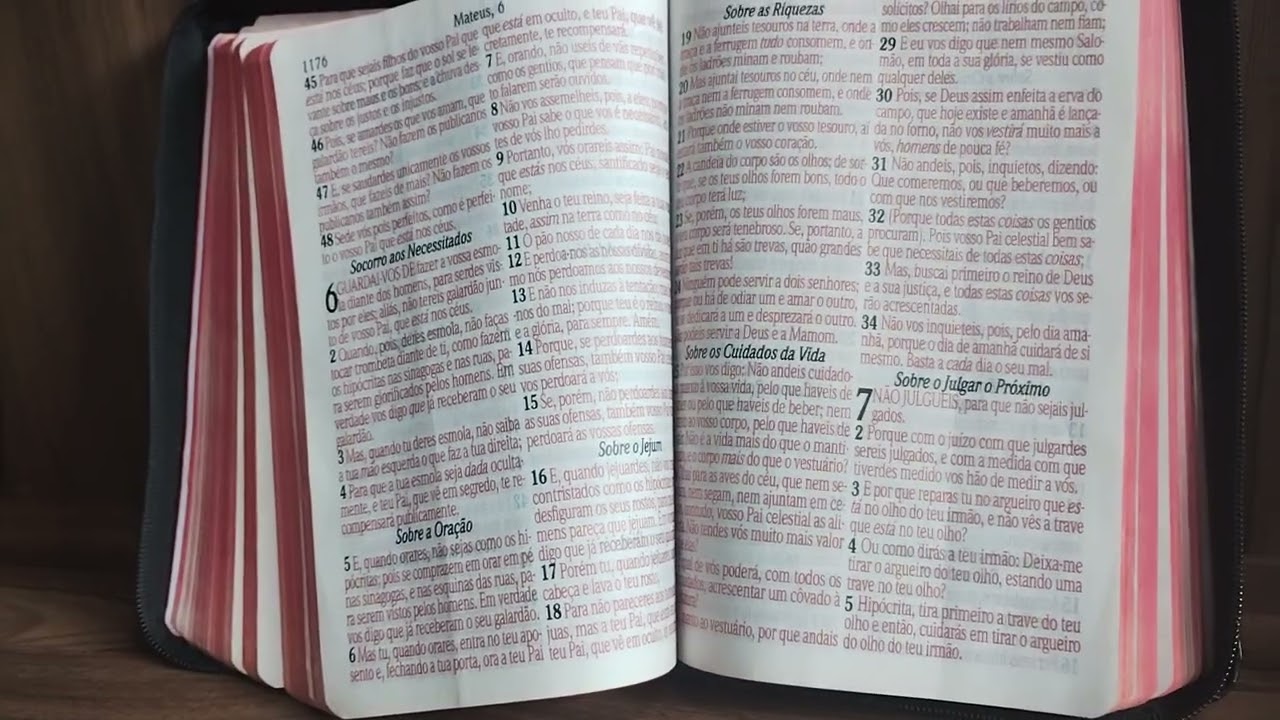 1176
Mateus, 6
45 Para que sejais filhos do vosso Pai que
está nos céus; porque faz que o sol se le-
vante sobre maus e bons, e a chuva des-
ça sobre os justos e os injustos.
46 Pois, se amardes os que vos amam, que
galardão tereis? Não fazem os publicanos
também o mesmo?
47 E, se saudardes unicamente os vossos
irmãos, que fazeis de mais? Não fazem os
publicanos também assim?
48 Sede vós pois perfeitos, como é perfei-
to o vosso Pai que está nos céus.
Socorro aos Necessitados
6 GUARDAI-VOS DE fazer a vossa esmo-
la diante dos homens, para serdes vis-
tos por eles; aliás, não tereis galardão jun-
to de vosso Pai, que está nos céus.
2 Quando, pois, deres esmola, não faças
tocar trombeta diante de ti, como fazem
os hipócritas nas sinagogas e nas ruas, pa-
ra serem glorificados pelos homens. Em
verdade vos digo que já receberam o seu
galardão.
3 Mas, quando tu deres esmola, não saiba
a tua mão esquerda o que faz a tua direita;
4 Para que a tua esmola seja dada oculta-
mente, e teu Pai, que vê em segredo, te re-
compensará publicamente.
Sobre a Oração
5 E, quando orares, não sejas como os hi-
pócritas; pois se comprazem em orar em pé
nas sinagogas, e nas esquinas das ruas, pa-
ra serem vistos pelos homens. Em verdade
vos digo que já receberam o seu galardão.
6 Mas tu, quando orares, entra no teu apo-
sento e, fechando a tua porta, ora a teu Pai
que está em oculto, e teu Pai, que vê
cretamente, te recompensará.
7 E, orando, não useis de vãs
como os gentios, que pensam que por
to falarem serão ouvidos.
8 Não vos assemelheis, pois, a eles;
vosso Pai sabe o que vos é
tes de vós lho pedirdes.
9 Portanto, vós orareis assim: Pai
que estás nos céus, santificado seja
nome;
10 Venha o teu reino, seja feita a tua
tade, assim na terra como no céu;
11 O pão nosso de cada dia nos dá
12 E perdoa-nos as nossas dívidas,
mo nós perdoamos aos nossos
13 E não nos induzas à tentação;
nos do mal; porque teu é o reino
e a glória, para sempre. Amém.
14 Porque, se perdoardes aos
suas ofensas, também vosso Pai
vos perdoará a vós;
15 Se, porém, não perdoardes
as suas ofensas, também vosso Pai
perdoará as vossas ofensas.
Sobre o Jejum
16 E, quando jejuardes, não
contristados como os hipócritas
desfiguram os seus rostos,
mens pareça que jejuam. Em
digo que já receberam o seu
17 Porém tu, quando jejuares,
cabeça e lava o teu rosto,
18 Para não pareceres aos
juas, mas a teu Pai, que
teu Pai, que vê em oculto,
Sobre as Riquezas
19 Não ajunteis tesouros na terra, onde a
traça e a ferrugem tudo consomem, e on-
os ladrões minam e roubam;
20 Mas ajuntai tesouros no céu, onde nem
traça nem a ferrugem consomem, e onde
ladrões não minam nem roubam.
21 Porque onde estiver o vosso tesouro, aí
também o vosso coração.
22 A candeia do corpo são os olhos; de sor-
que, se os teus olhos forem bons, todo o
corpo terá luz;
23 Se, porém, os teus olhos forem maus,
corpo será tenebroso. Se, portanto, a
que em ti há são trevas, quão grandes
tais trevas!
24 Ninguém pode servir a dois senhores;
ou há de odiar um e amar o outro,
dedicará a um e desprezará o outro.
podeis servir a Deus e a Mamom.
Sobre os Cuidados da Vida
isso vos digo: Não andeis cuidado-
vossa vida, pelo que haveis de
ou pelo que haveis de beber; nem
ao vosso corpo, pelo que haveis de
Não é a vida mais do que o manti-
e o corpo mais do que o vestuário?
para as aves do céu, que nem se-
nem segam, nem ajuntam em ce-
vosso Pai celestial as ali-
Não tendes vós muito mais valor
de vós poderá, com todos os
acrescentar um côvado à
ao vestuário, por que andais
solícitos? Olhai para os lírios do campo, co-
mo eles crescem; não trabalham nem fiam;
29 E eu vos digo que nem mesmo Salo-
mão, em toda a sua glória, se vestiu como
qualquer deles.
30 Pois, se Deus assim enfeita a erva do
campo, que hoje existe e amanhã é lança-
da no forno, não vos vestirá muito mais a
vós, homens de pouca fé?
31 Não andeis, pois, inquietos, dizendo:
Que comeremos, ou que beberemos, ou
com que nos vestiremos?
32 (Porque todas estas coisas os gentios
procuram). Pois vosso Pai celestial bem sa-
be que necessitais de todas estas coisas;
33 Mas, buscai primeiro o reino de Deus
e a sua justiça, e todas estas coisas vos se-
rão acrescentadas.
34 Não vos inquieteis, pois, pelo dia ama-
nhã, porque o dia de amanhã cuidará de si
mesmo. Basta a cada dia o seu mal.
Sobre o Julgar o Próximo
7 NÃO JULGUEIS, para que não sejais jul-
gados.
2 Porque com o juízo com que julgardes
sereis julgados, e com a medida com que
tiverdes medido vos hão de medir a vós.
3 E por que reparas tu no argueiro que es-
tá no olho do teu irmão, e não vês a trave
que está no teu olho?
4 Ou como dirás a teu irmão: Deixa-me
tirar o argueiro do teu olho, estando uma
trave no teu olho?
5 Hipócrita, tira primeiro a trave do teu
olho e então, cuidarás em tirar o argueiro
do olho do teu irmão.